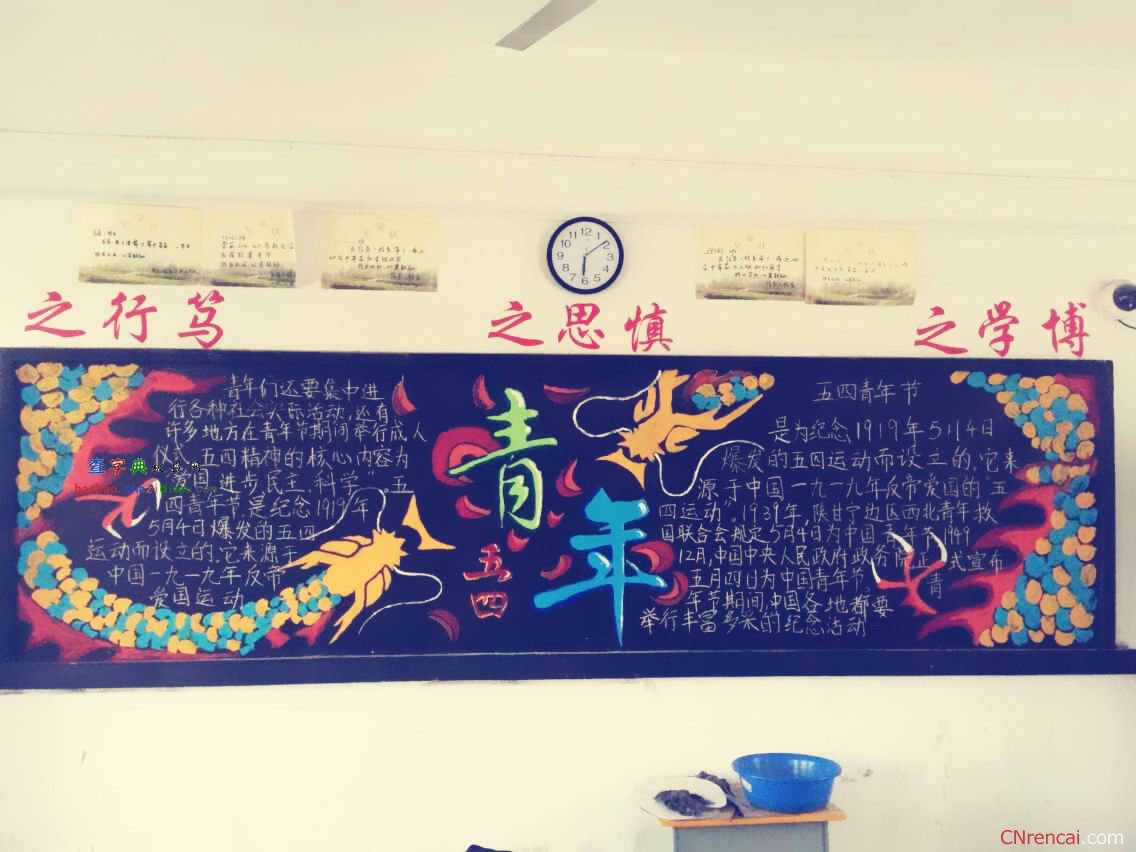 之行笃
之思慎
之学博
五四青年节
是为纪念1919年5月4日
爆发的五四运动而设立的,它来
源于中国一九一九年反帝爱国的"五
四运动"。1939年,陕甘宁边区西北青年救
国联合会规定5月4日为中国青年节,1949
12月,中国中央人民政府政务院正式宣布
五月四日为中国青年节
青
年节期间,中国各地都要
举行丰富多采的纪念活动
青年
五四
青年们还要集中进
行各种社会实际活动,还有
许多地方在青年节期间举行成人
仪式。五四精神的核心内容为
爱国、进步、民主、科学。五
四青年节,是纪念1919年
5月4日爆发的五四
运动而设立的,它来源于
中国一九一九年反帝
爱国运动
查字典
12 1 2 3 4 5 6 7 8 9 10 11
CNrencai.com